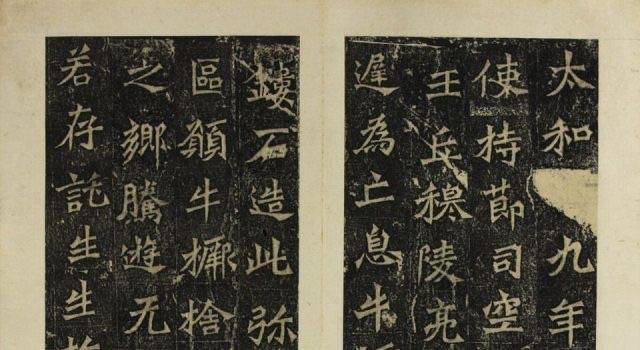 太和九年
使持節司空
王丘穆陵亮
遲為亡息牛
鏤石造此弥
區願牛橛捨
之鄉騰遊无
若存託生生